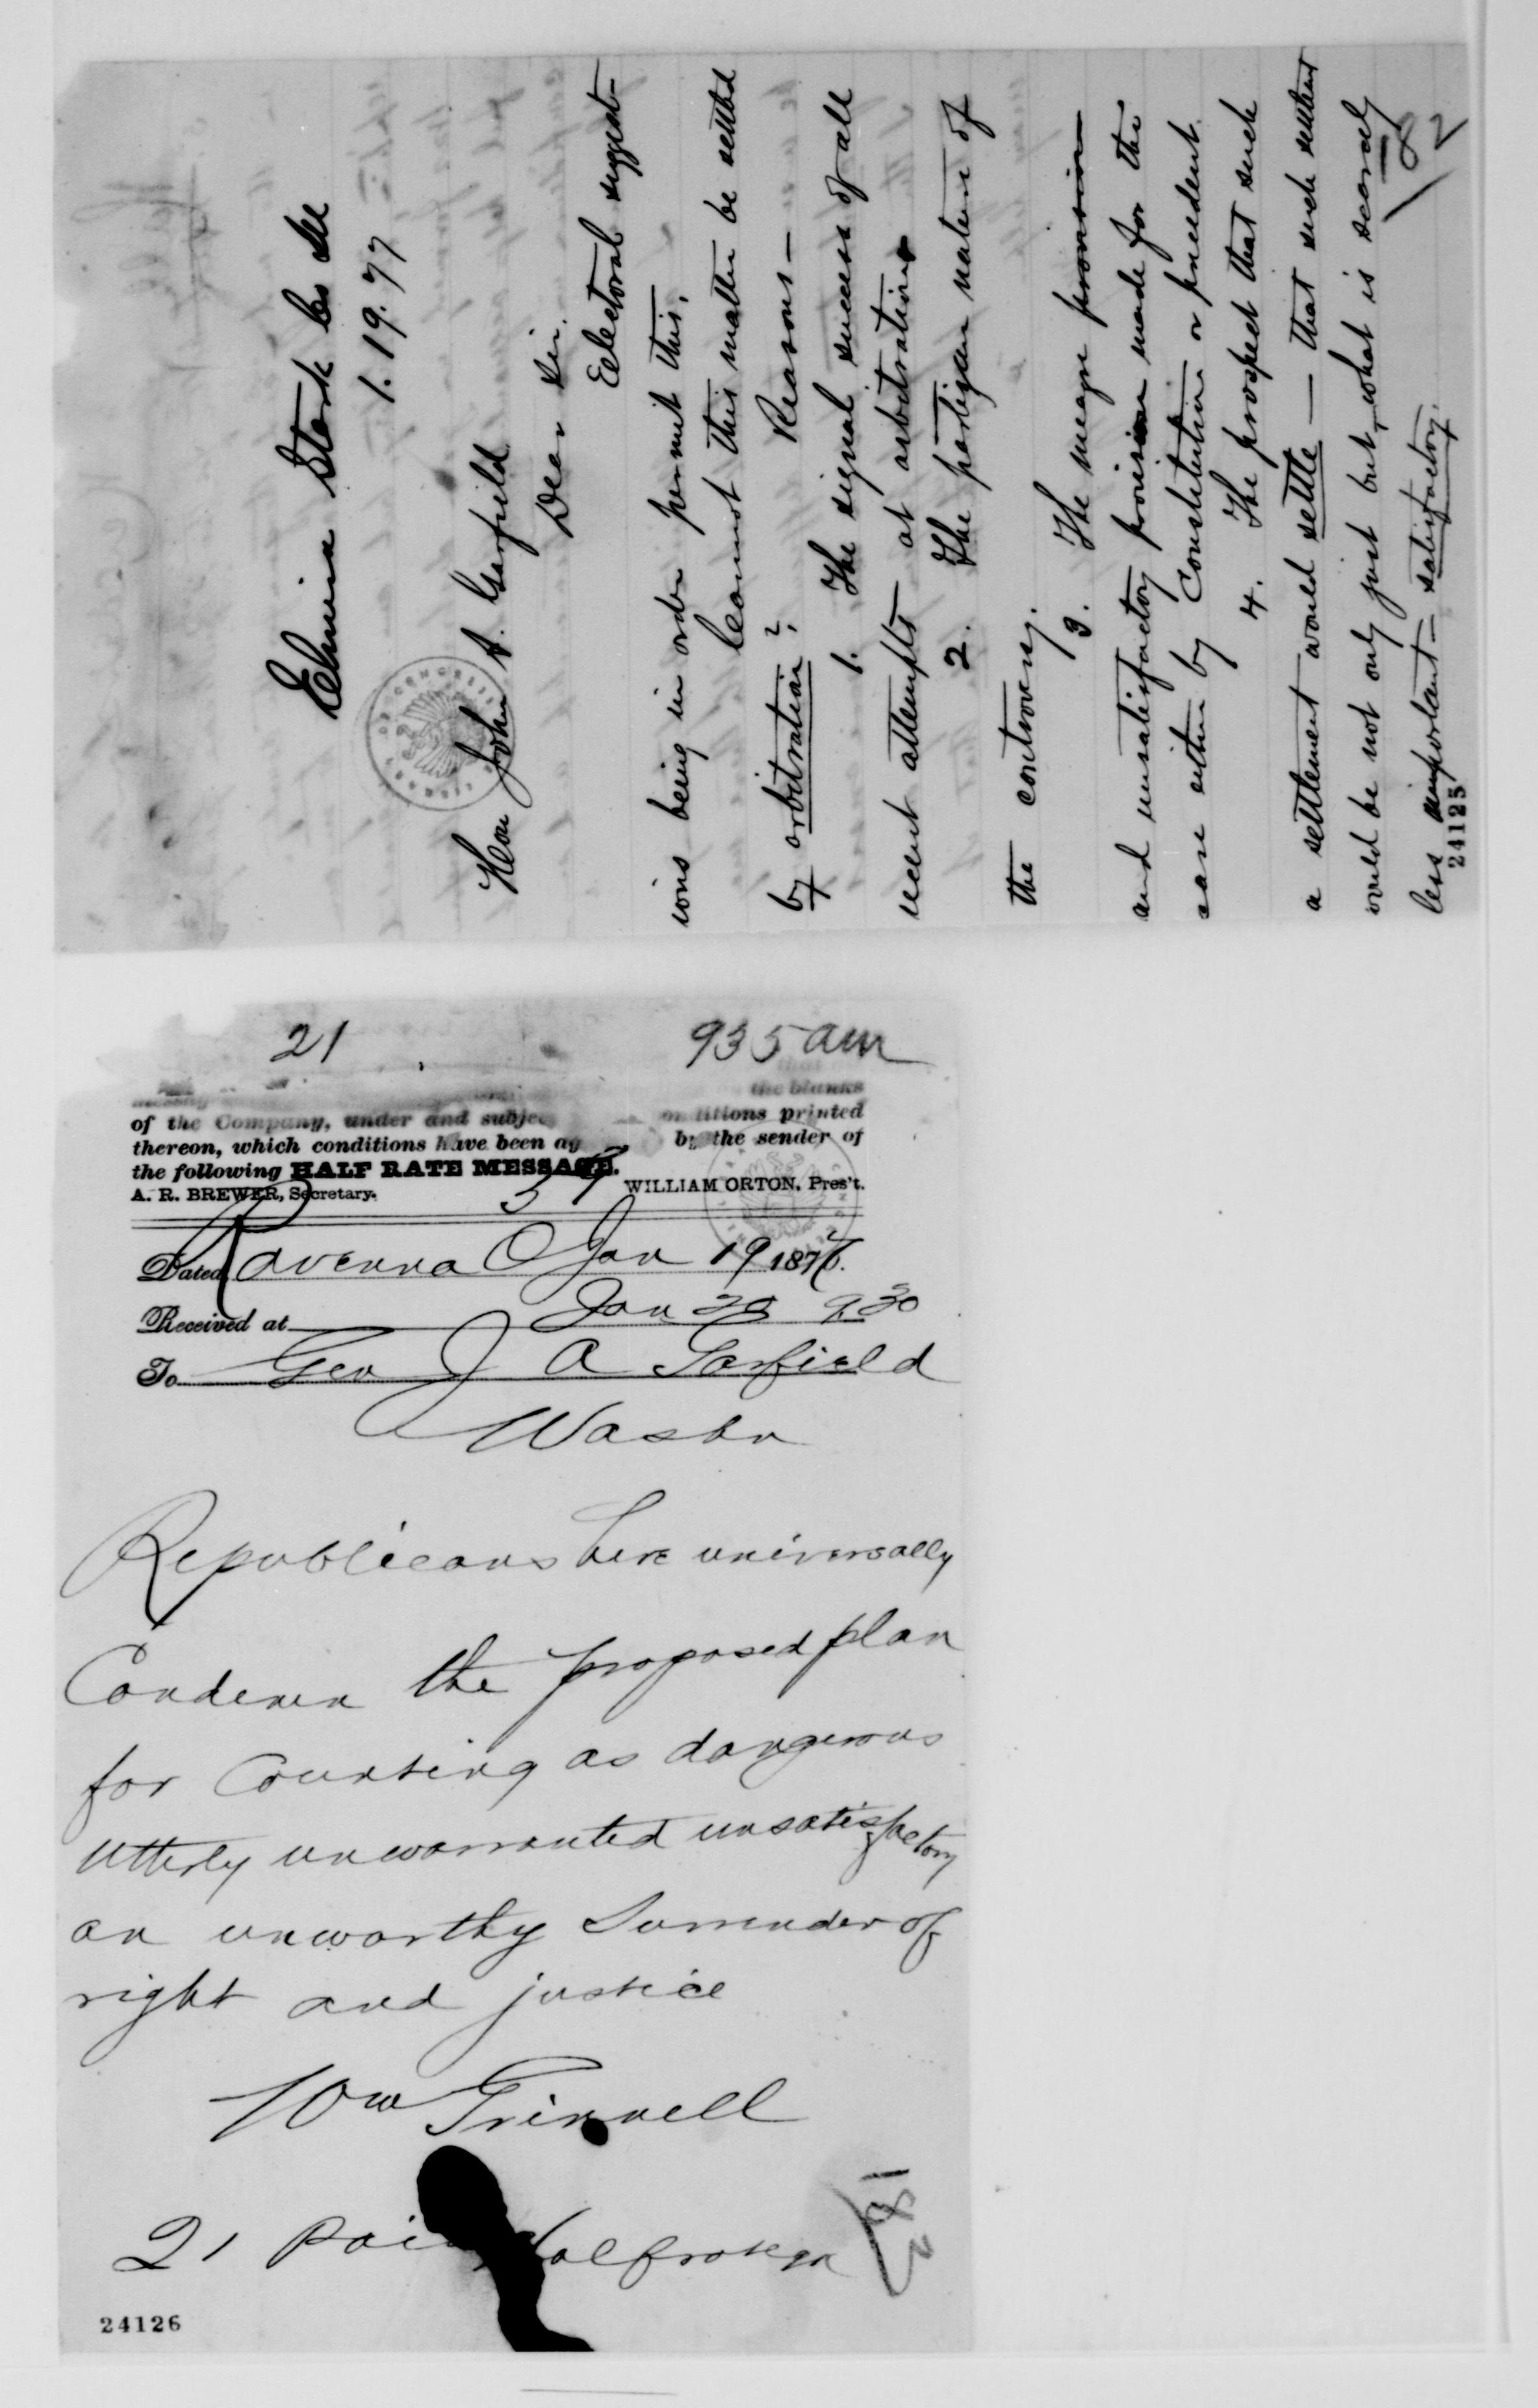 Elmira Stark Co Ill
1.19.77
Hon John A. Garfield
Dear Sir.
Electoral suggest-
ions being in order permit this.
Cannot this matter be settled
by arbitration? Reasons—
1. The signal success of all
recent attempts at arbitration
2. The partizan nature of
the controversy.
3. The meagre provision
and unsatisfactory provision made for the
case either by Constitution or precedent.
4. The prospect that such
a settlement would settle — that such settlement
would be not only just but, what is scarcely
less important— satisfactory.
24125
21 935 am
the blanks
of the Company, under and subject conditions printed
thereon, which conditions have been ag by the sender of
the following HALF RATE MESSAGE.
A. R. BREWER, Secretary. WILLIAM ORTON, Pres't.
Dated Ravenna O Jan 19 1877.
Received at Jan 20 930
To Gen J A Garfield
Washn
Republicans here universally
Condemn the proposed plan
for Counting as dangerous
utterly unwarranted unsatisfactory
an unworthy Surrender of
right and justice
Wm Grinnell
21 Paid
24126